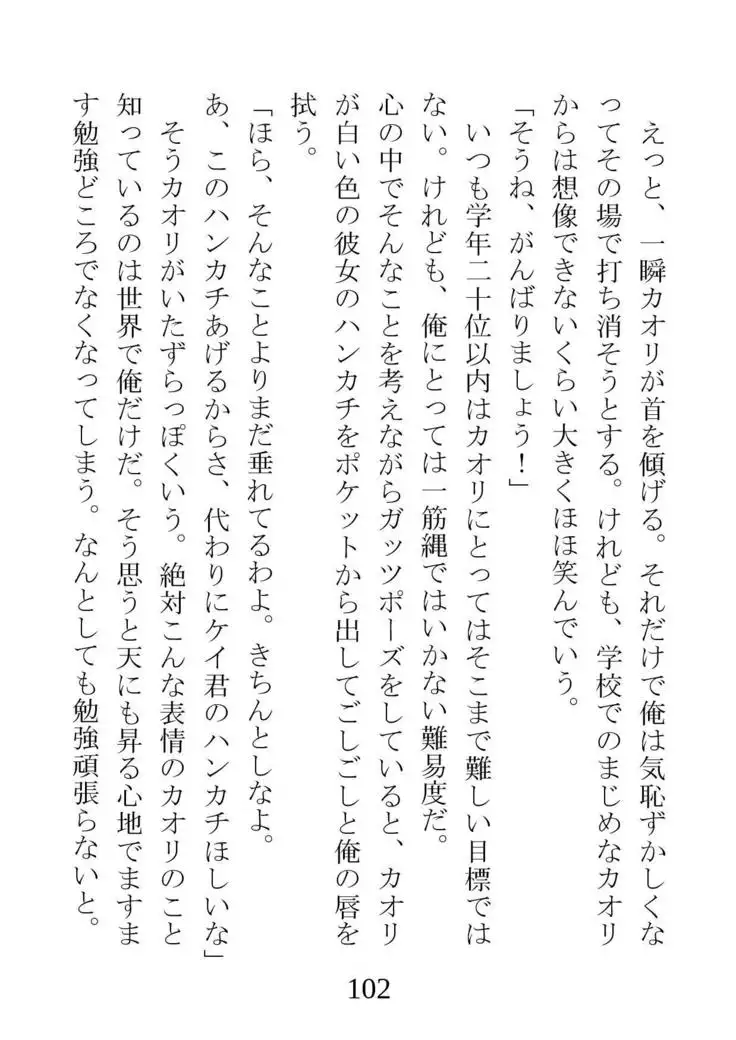 えっと、一瞬カオリが首を傾げる。それだけで俺は気恥ずかしくな
ってその場で打ち消そうとする。けれども、学校でのまじめなカオリ
からは想像できないくらい大きくほほ笑んでいう。
「そうね、がんばりましょう！」
いつも学年二十位以内はカオリにとってはそこまで難しい目標では
ない。けれども、俺にとっては一筋縄ではいかない難易度だ。
心の中でそんなことを考えながらガッツポーズをしていると、カオリ
が白い色の彼女のハンカチをポケットから出してごしごしと俺の唇を
拭う。
「ほら、そんなことよりまだ垂れてるわよ。きちんとしなよ。
あ、このハンカチあげるからさ、代わりにケイ君のハンカチほしいな」
そうカオリがいたずらっぽくいう。絶対こんな表情のカオリのこと
知っているのは世界で俺だけだ。そう思うと天にも昇る心地でますま
す勉強どころでなくなってしまう。なんとしても勉強頑張らないと。
102